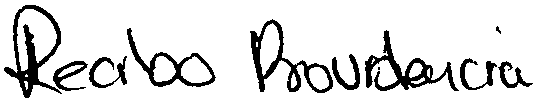 Recibo Providencia